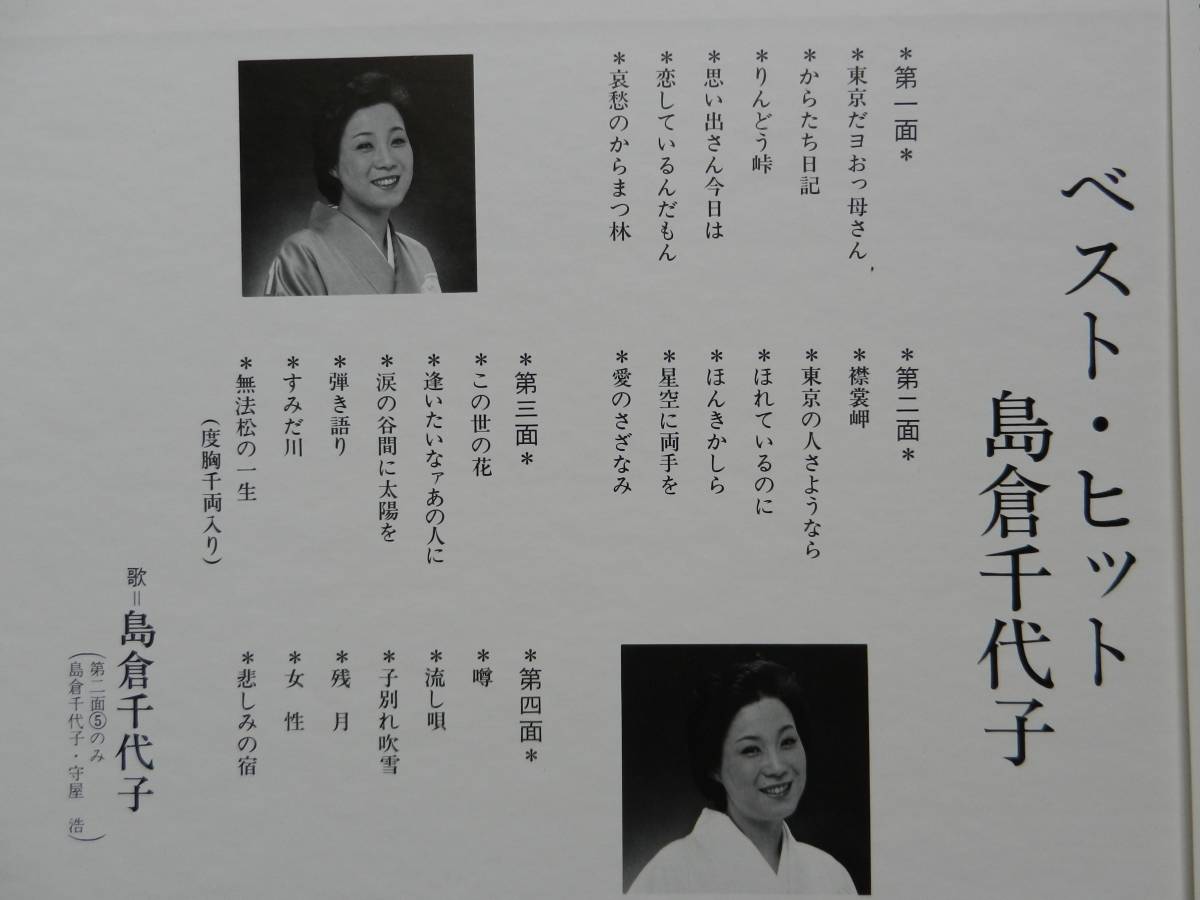 ベスト・ヒット
島倉千代子
＊第一面＊
＊東京だヨおっ母さん,
＊からたち日記
＊りんどう峠
＊思い出さん今日は
＊恋しているんだもん
＊哀愁のからまつ林
＊第二面＊
＊襟裳岬
＊東京の人さようなら
＊ほれているのに
＊ほんきかしら
＊星空に両手を
＊愛のさざなみ
＊第三面＊
＊この世の花
＊逢いたいなァあの人に
＊涙の谷間に太陽を
＊弾き語り
＊すみだ川
＊無法松の一生
(度胸千両入り)
＊第四面＊
＊噂
＊流し唄
＊子別れ吹雪
＊残月
＊女　性
＊悲しみの宿
歌＝島倉千代子
(第二面⑤のみ
島倉千代子・守屋　浩)